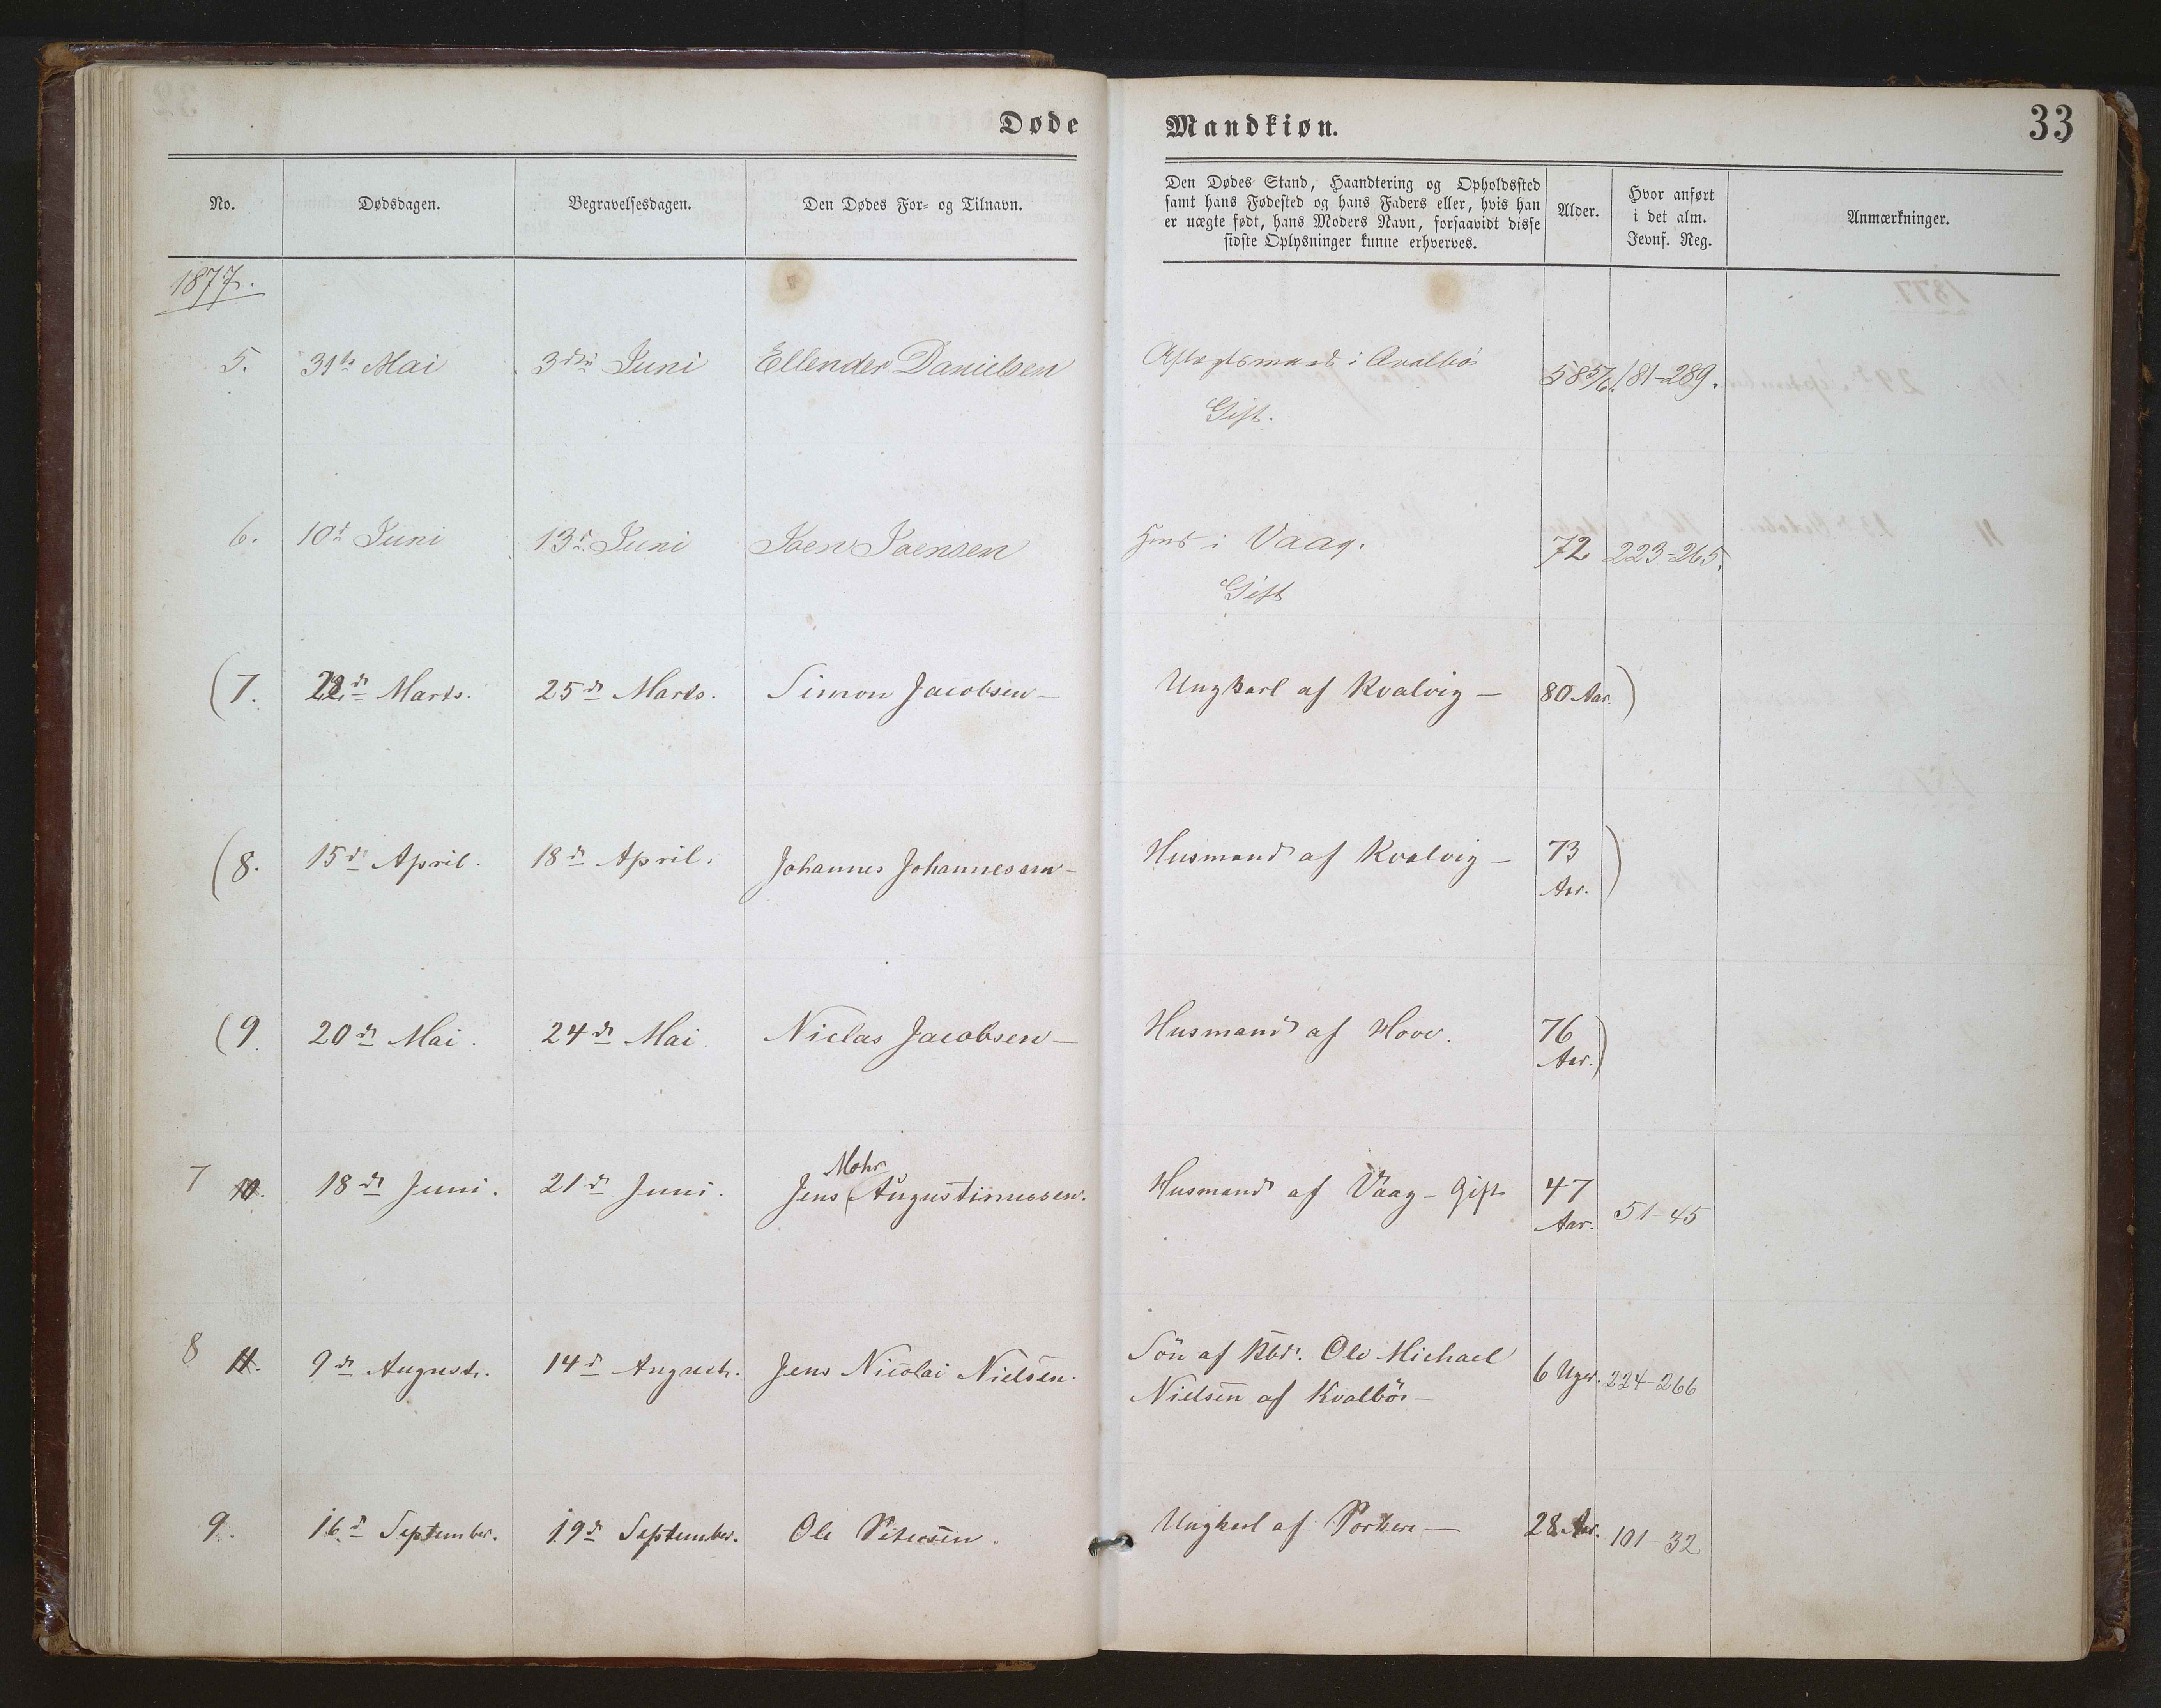 Døde Mandkiøn. 33
No. Dødsdagen. Begravelsesdagen. Den Dødes For- og Tilnavn. Den Dødes Stand, Haandtering og Opholdssted
samt hans Fødested og hans Faders eller, hvis han
er uægte født, hans Moders Navn, forsaavidt disse
sidste Oplysninger kunne erhverves. Alder. Hvor anført
i det alm.
Jevnf. Reg. Anmærkninger.
1877.
5. 31te Mai 3die Juni Ellender Danielsen Aftægtsmand i Qvalbö 58 5/6. 181-289.
Gift.
6. 10d Juni 13d Juni Joen Joensen Hmd i Vaag. 72 223-265.
Gift
(7. 22d Marts. 25d Marts. Simon Jacobsen — Ungkarl af Kvalvig — 80 Aar.)
(8. 15d April. 18d April. Johannes Johannesen — Husmand af Kvalvig — 73
Aar.)
(9. 20d Mai. 24d Mai. Niclas Jacobsen — Husmand af Hove. 76
Aar.)
Mohr
7 10. 18d Juni. 21d Juni. Jens Augustinussen. Husmand af Vaag — Gift 47
Aar. 51-45
8 11. 9d August. 14d August. Jens Nicolai Nielsen. Sön af Kbd. Ole Michael
Nielsen af Kvalbö — 6 Uger. 224-266
9. 16d September. 19d September. Ole Petersen. Ungkarl af Porkere — 28 Aar. 101-32